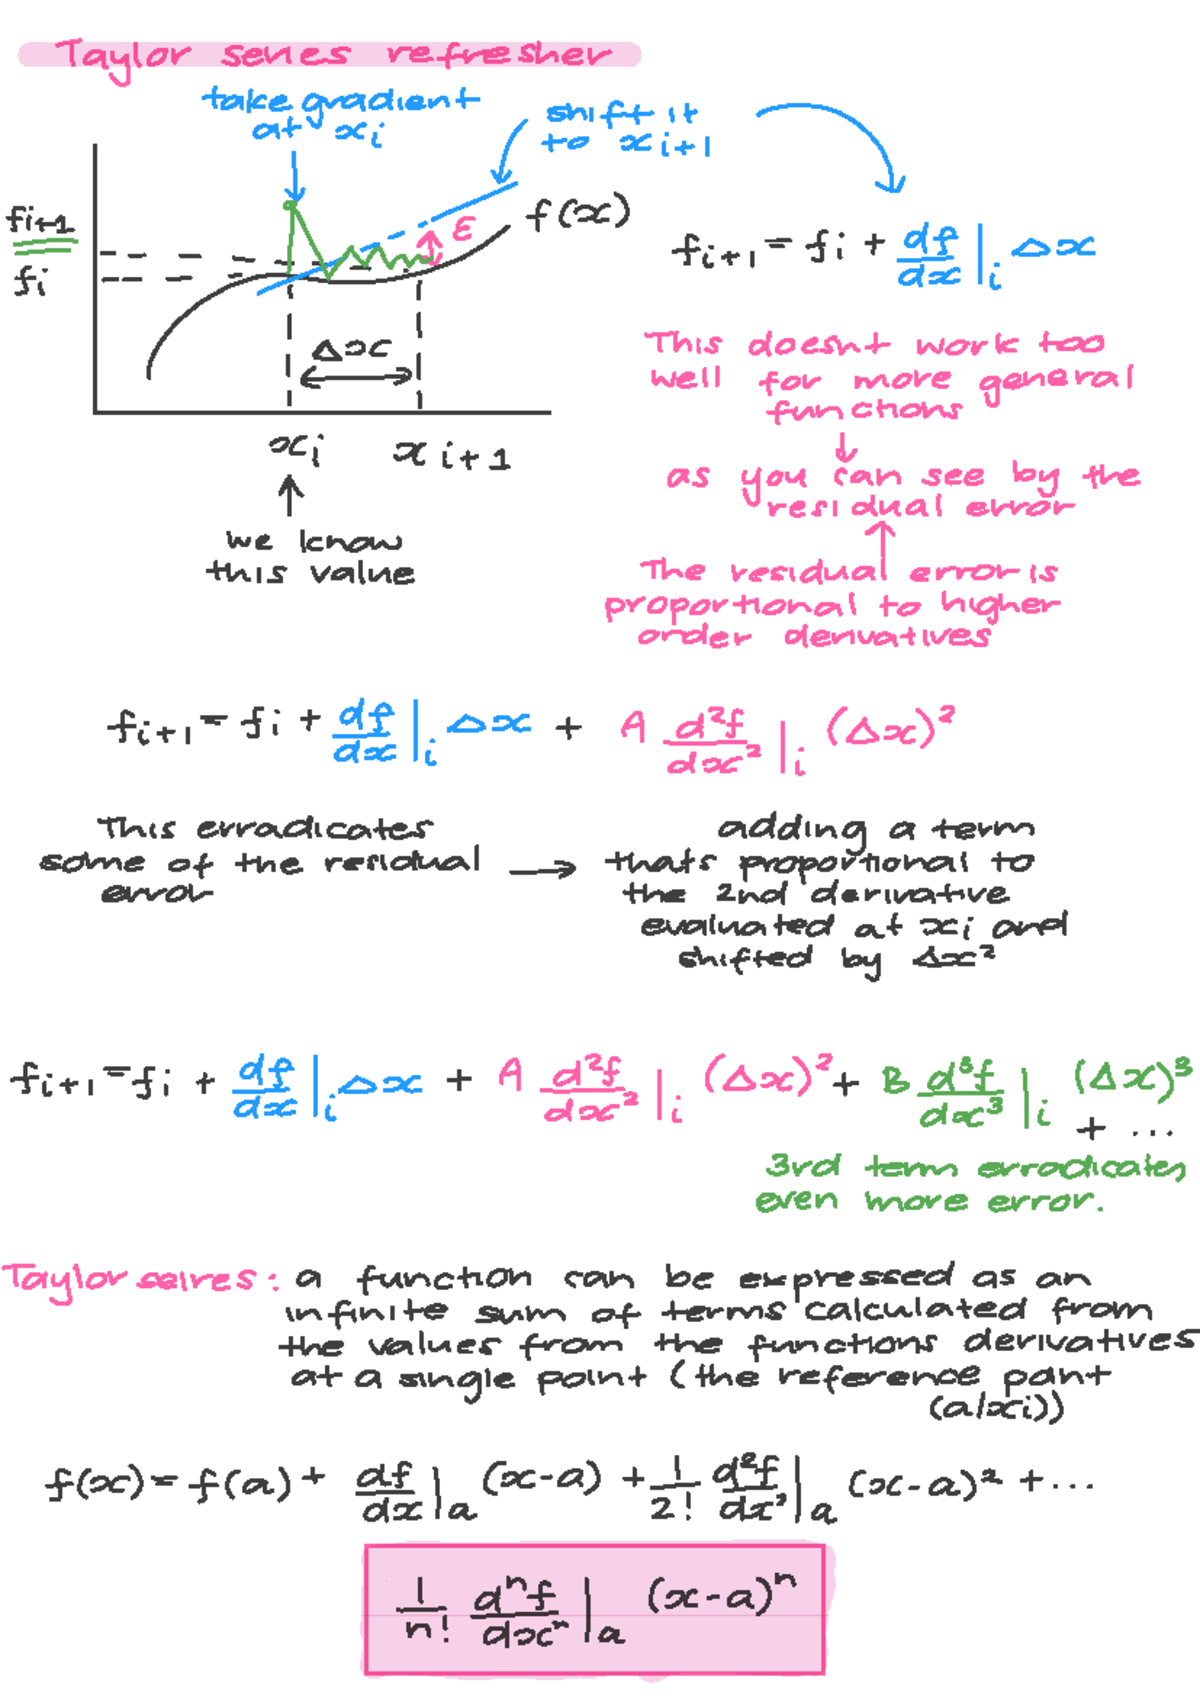 Taylor series refresher
take gradient
at xi
shift it
to xi+1
fi+1
fi
ε
f(x)
Δx
xi
xi+1
we know
this value
fi+1 = fi + df/dx |i Δx
This doesnt work too
well for more general
functions
↓
as you can see by the
residual error
↑
The residual error is
proportional to higher
order derivatives
fi+1 = fi + df/dx |i Δx + A d²f/dx² |i (Δx)²
This erradicates
some of the residual
error
→
adding a term
thats proportional to
the 2nd derivative
evaluated at xi and
shifted by Δx²
fi+1 = fi + df/dx |i Δx + A d²f/dx² |i (Δx)² + B d³f/dx³ |i (Δx)³
+ ...
3rd term erradicates
even more error.
Taylor seires: a function can be expressed as an
infinite sum of terms calculated from
the values from the functions derivatives
at a single point (the reference point
(a/xi))
f(x) = f(a) + df/dx |a (x-a) + 1/2! d²f/dx² |a (x-a)² + ...
1/n! dⁿf/dxⁿ |a (x-a)ⁿ